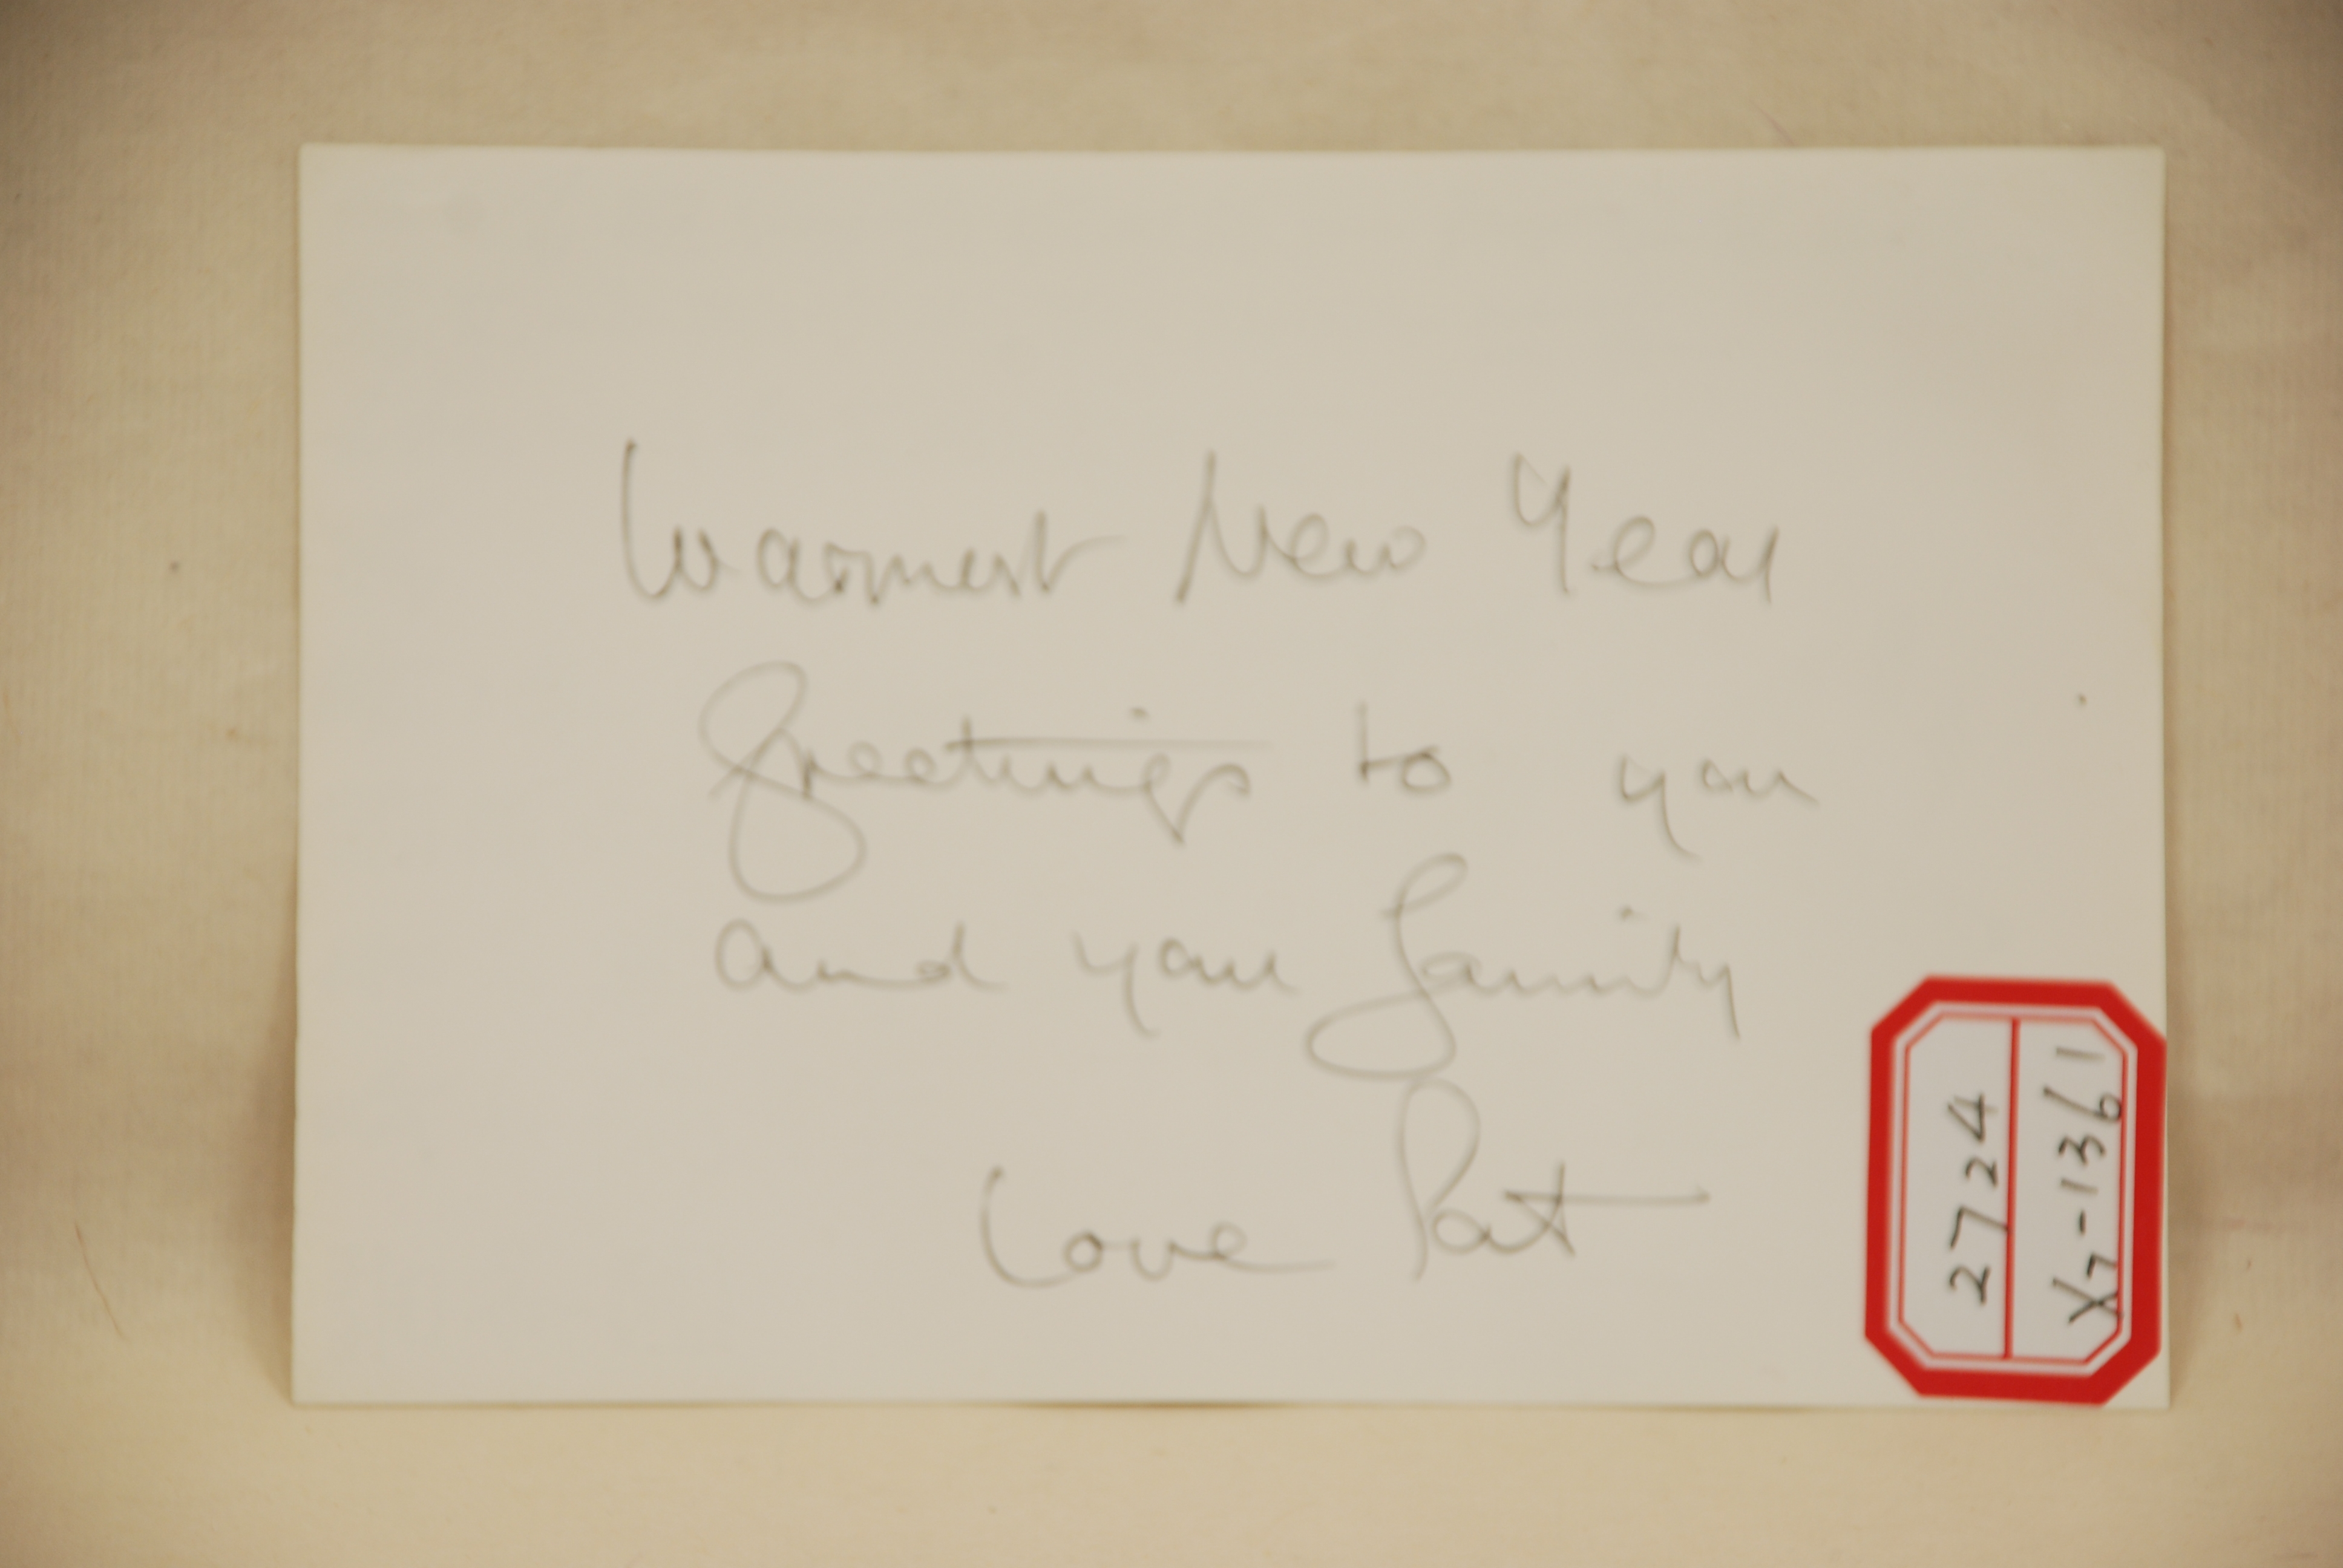 Warmest New Year
greetings to you
and your family
Love Pat
2724
X7-1361